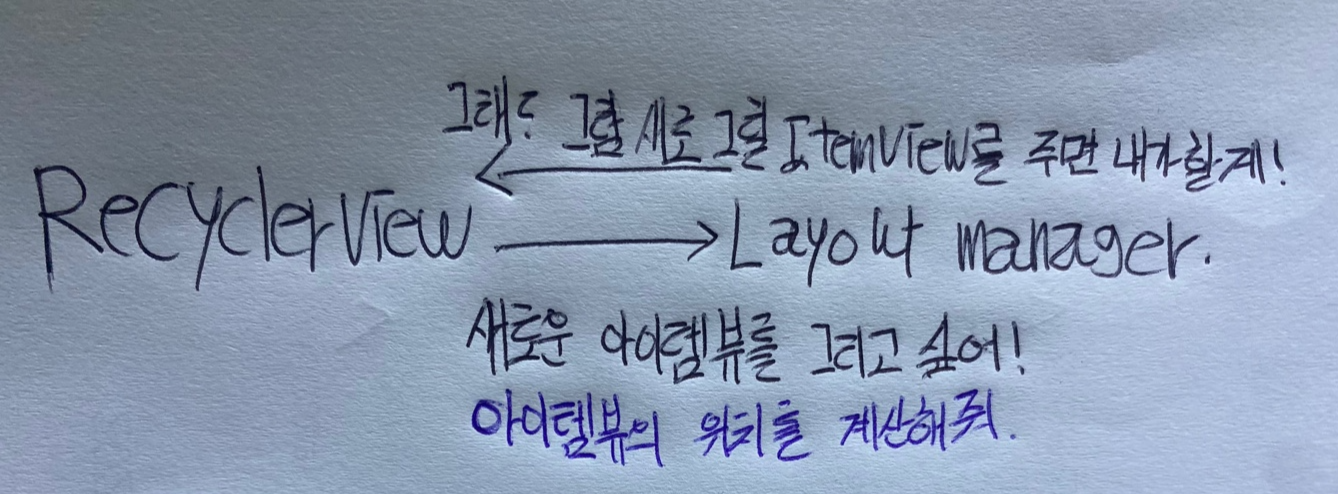 그래? 그럼 새로 그릴 ItemView를 주면 내가할게!
RecyclerView Layout manager.
새로운 아이템뷰를 그리고 싶어!
아이템뷰의 위치를 계산해줘.